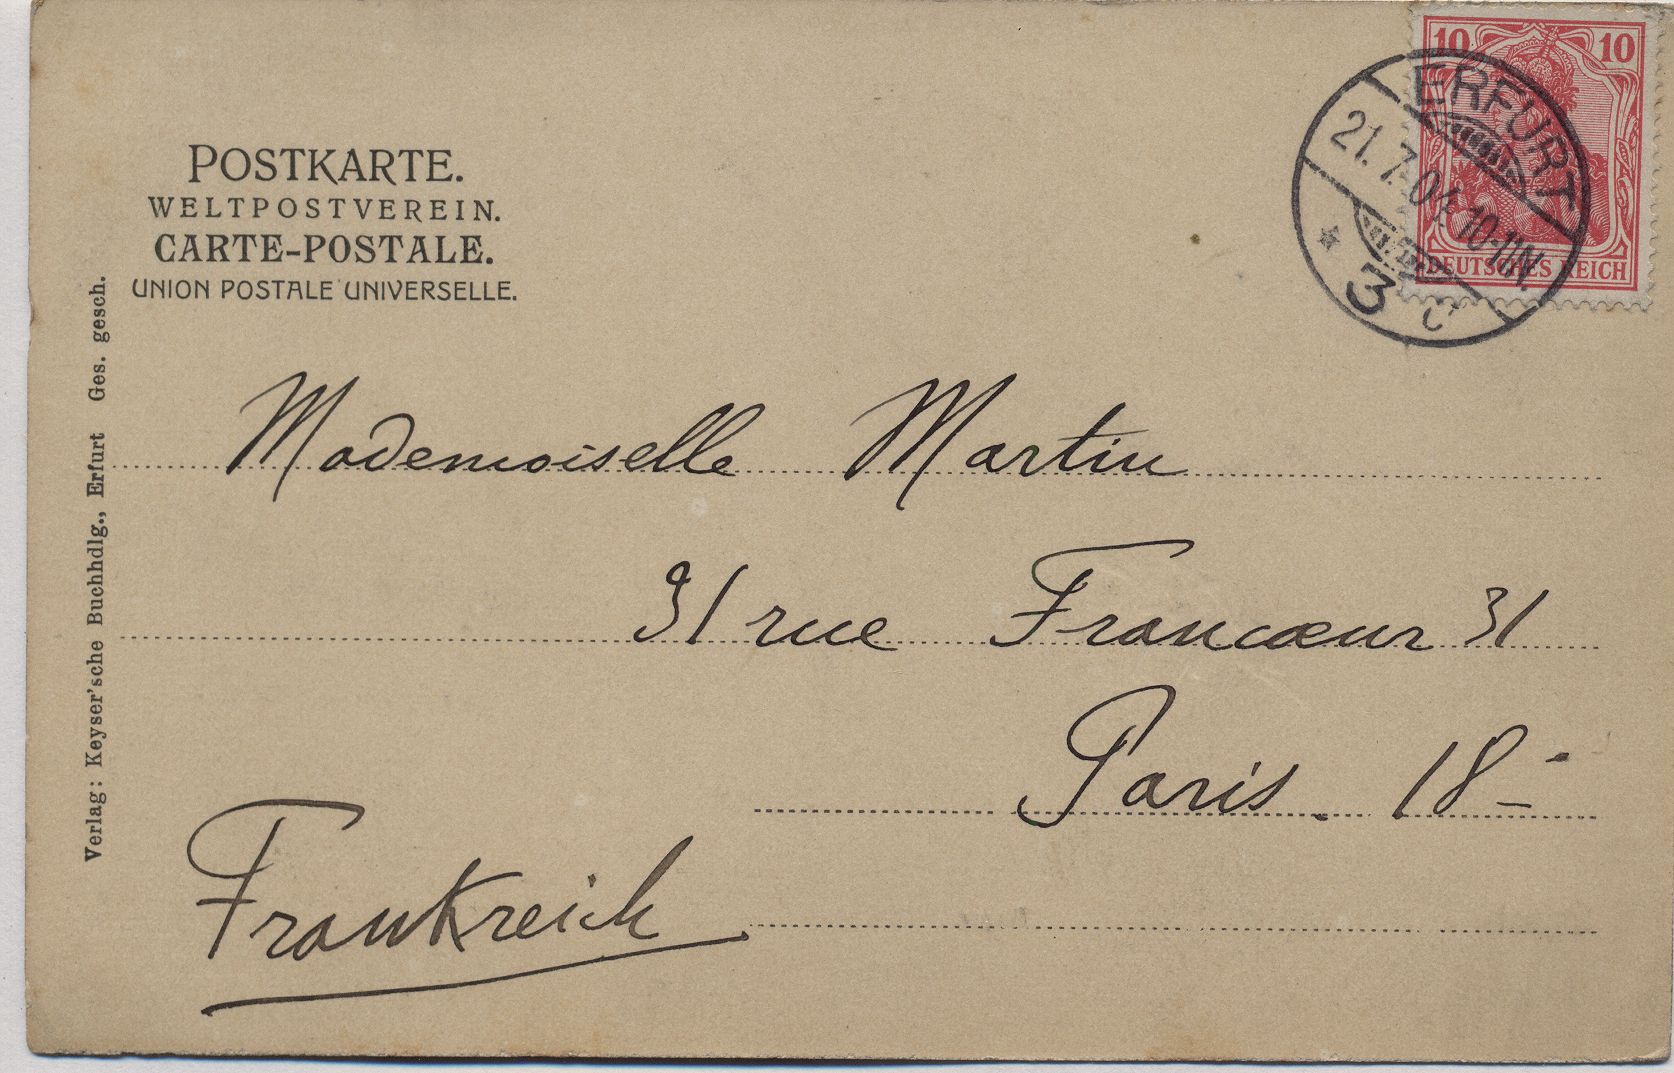 POSTKARTE.
WELTPOSTVEREIN.
CARTE-POSTALE.
UNION POSTALE UNIVERSELLE.
10 10
DEUTSCHES REICH
ERFURT
21.7.04. 10-11N.
* 3 c
Verlag: Keyser'sche Buchhdlg., Erfurt Ges. gesch.
Mademoiselle Martin
31 rue Francœur 31
Paris. 18-
Frankreich